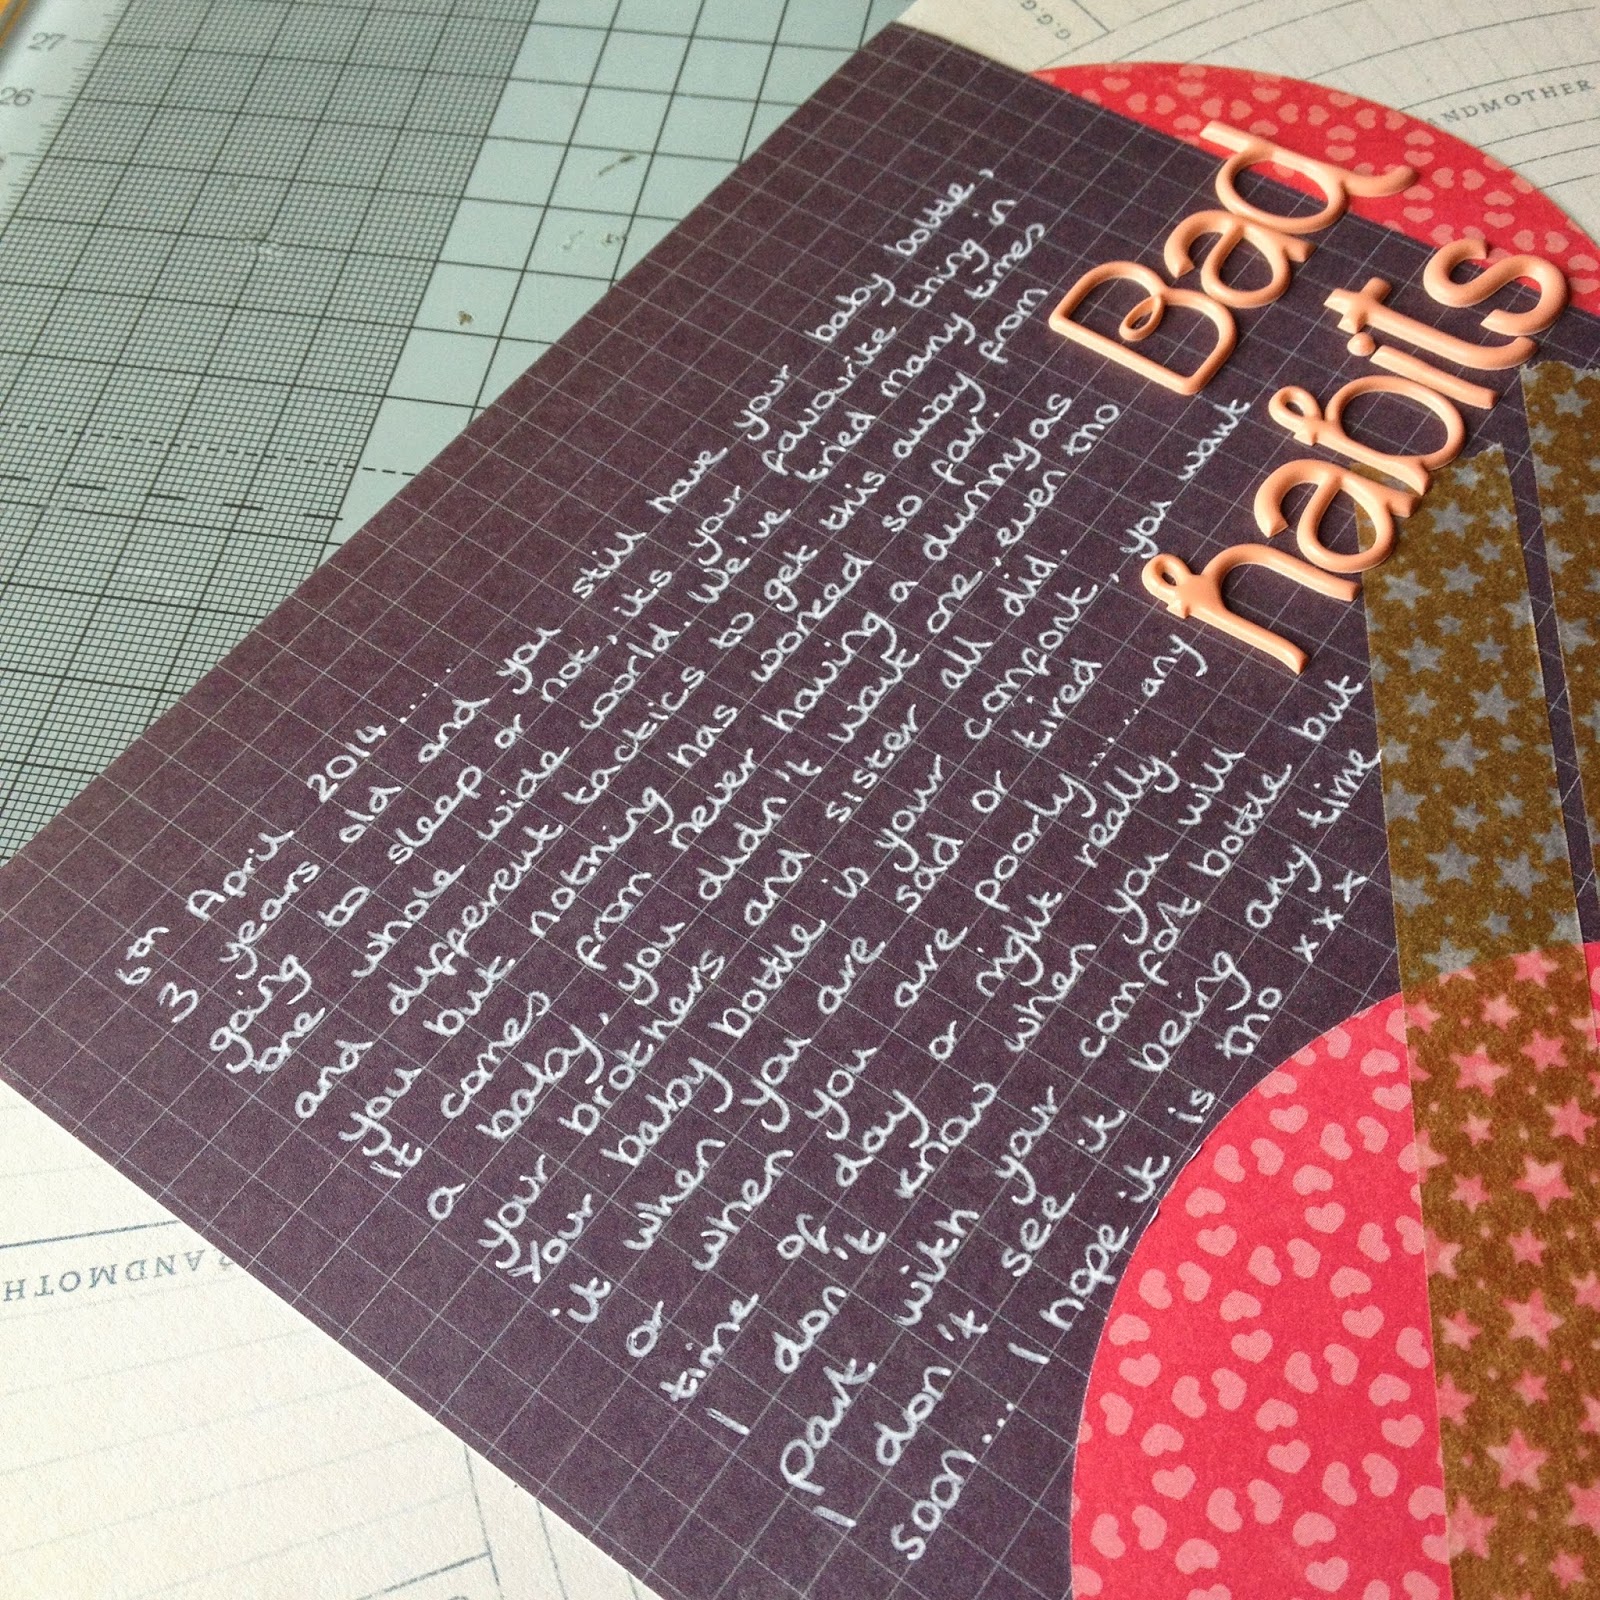 27
26
G.G.G
ANDMOTHER
Bad
habits
6th April 2014....
3 years old and you still have your baby bottle,
going to sleep or not, its your favourite thing in
the whole wide world. We've tried many times
and different tactics to get this away from
you but nothing has worked so far.
It comes from never having a dummy as
a baby, you didn't want one, even tho
your brothers and sister all did.
Your baby bottle is your comfort, you want
it when you are sad or tired,
or when you are poorly.... any
time of day or night really.
I don't know when you will
part with your comfort bottle but
I don't see it being any time
soon... I hope it is tho xxx
RANDMOTH